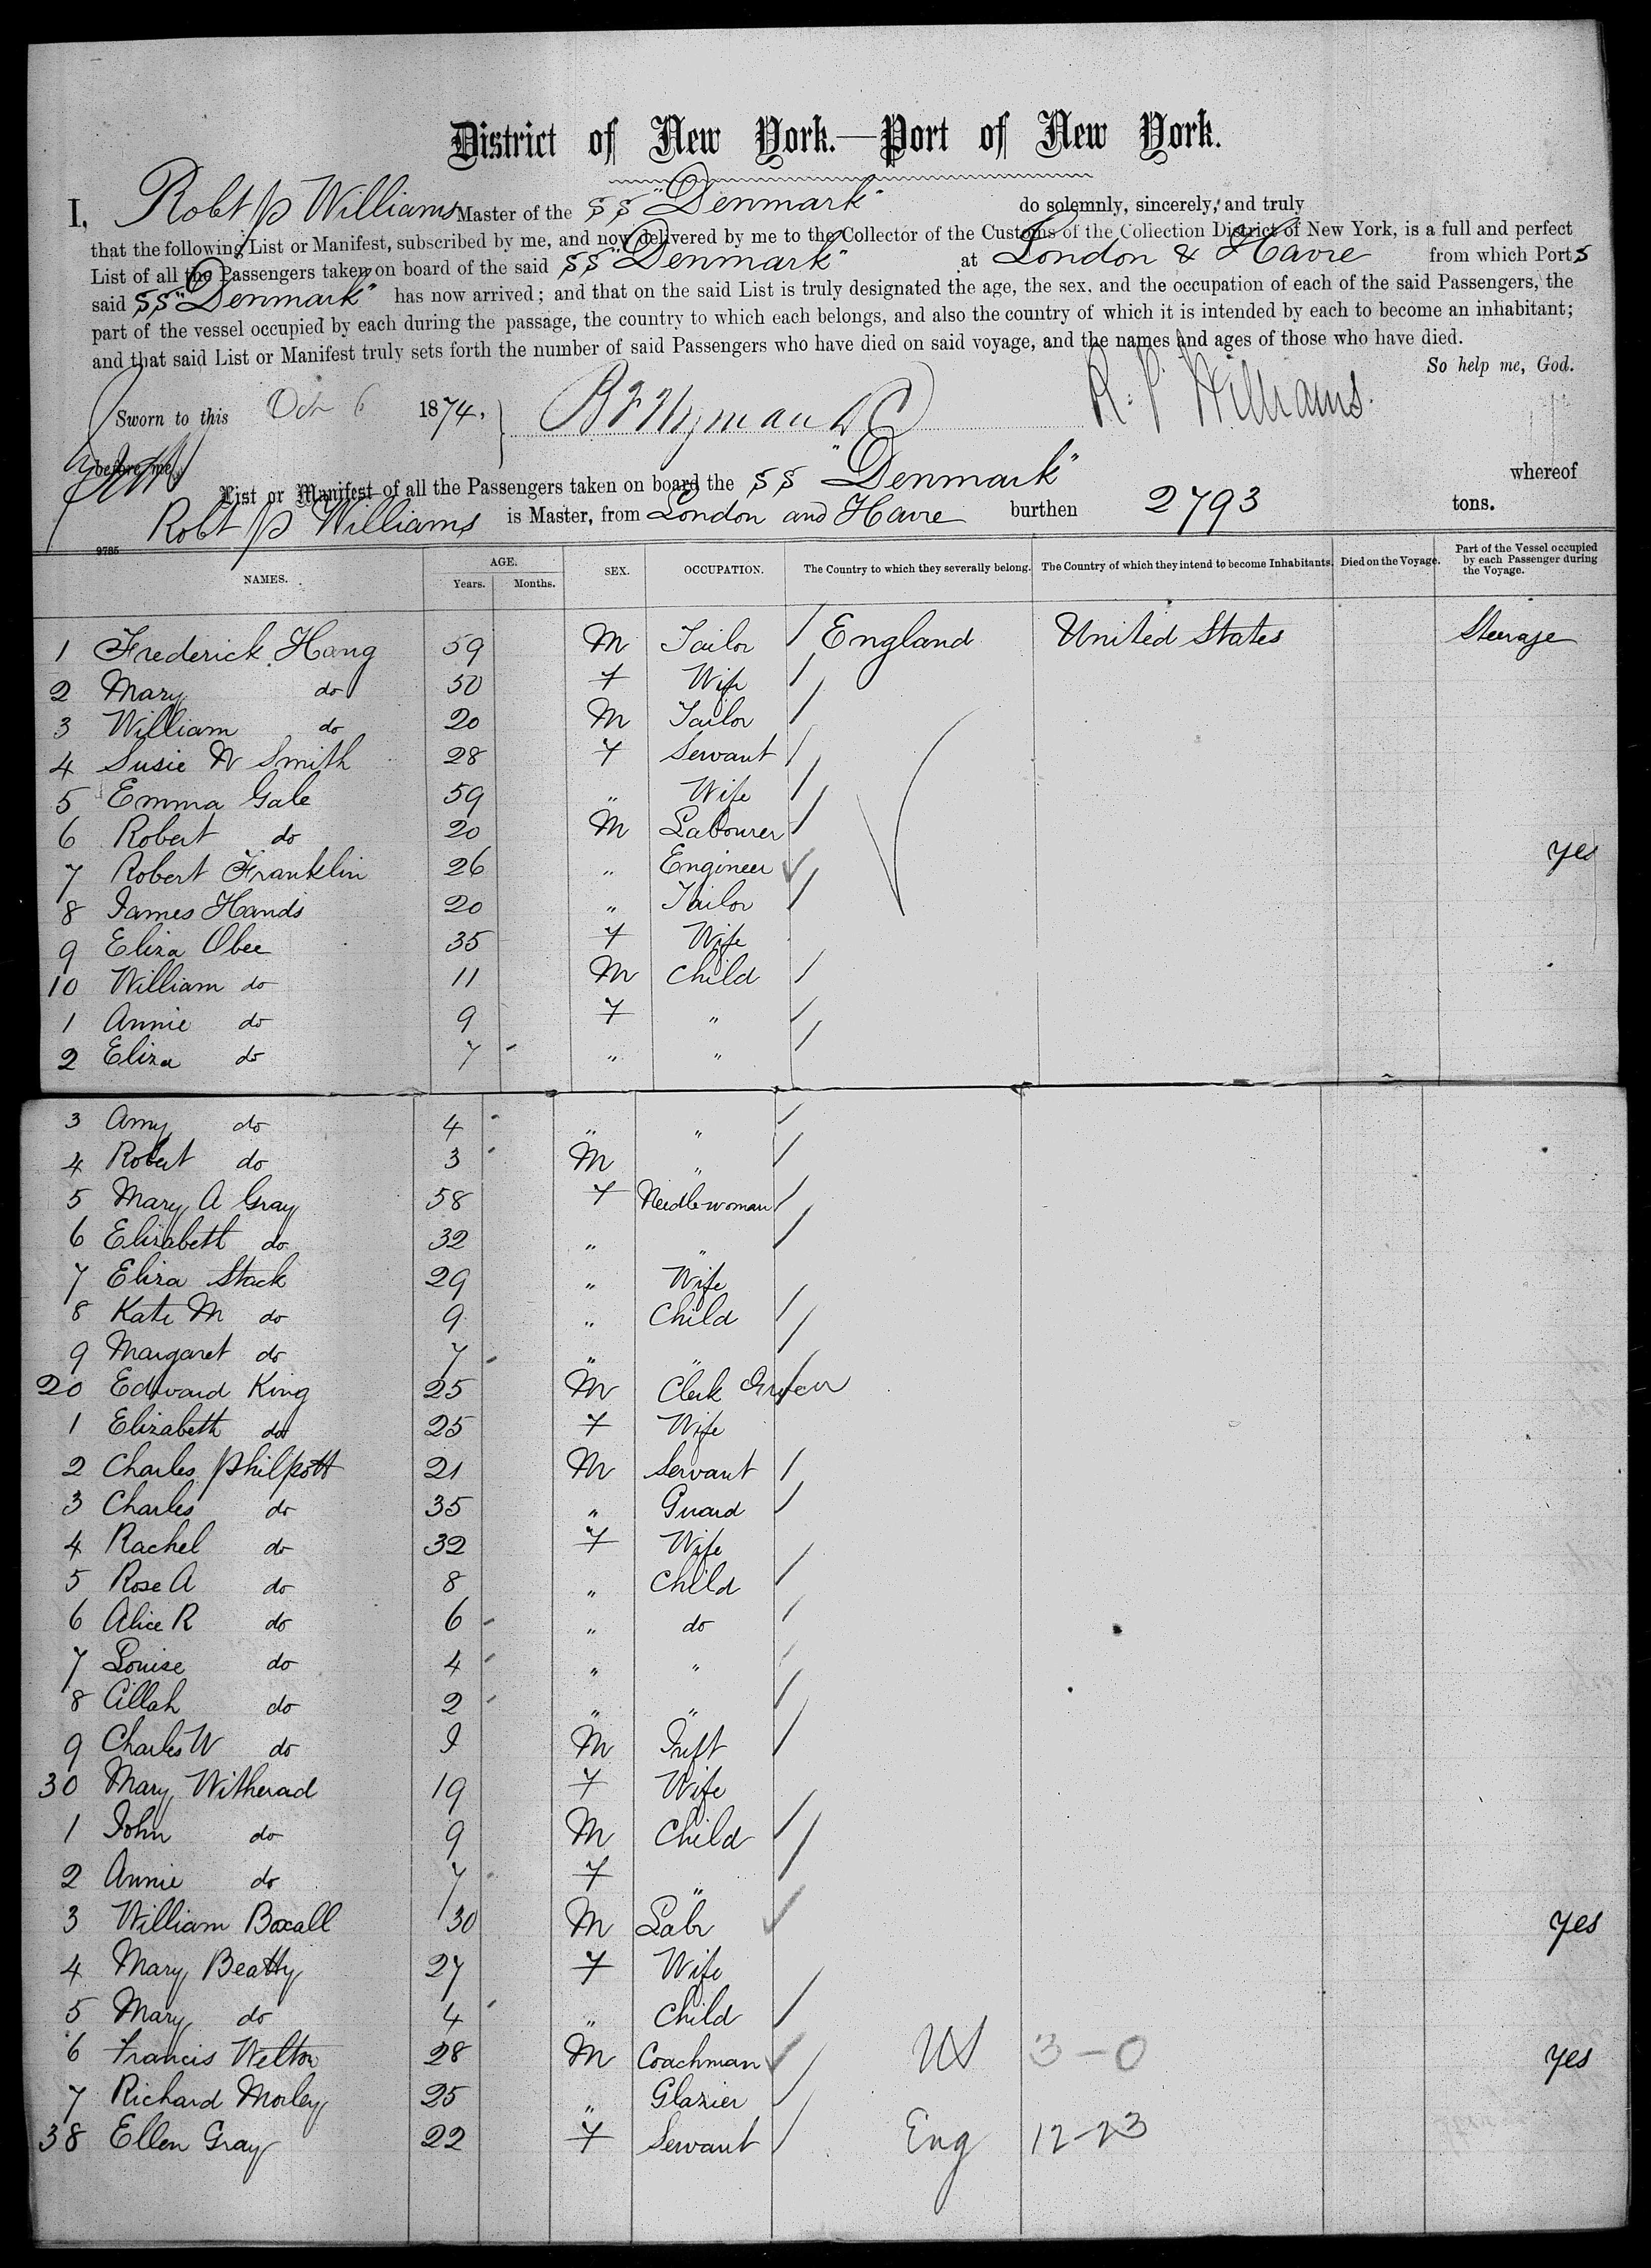 District of New York.—Port of New York.
I, Robt p Williams Master of the SS "Denmark" do solemnly, sincerely, and truly
that the following List or Manifest, subscribed by me, and now delivered by me to the Collector of the Customs of the Collection District of New York, is a full and perfect
List of all the Passengers taken on board of the said SS "Denmark" at London & Havre from which Ports
said SS "Denmark" has now arrived; and that on the said List is truly designated the age, the sex, and the occupation of each of the said Passengers, the
part of the vessel occupied by each during the passage, the country to which each belongs, and also the country of which it is intended by each to become an inhabitant;
and that said List or Manifest truly sets forth the number of said Passengers who have died on said voyage, and the names and ages of those who have died.
So help me, God.
Sworn to this Oct 6 1874. R. P. Williams.
before me,
List or Manifest of all the Passengers taken on board the SS "Denmark" whereof
Robt p Williams is Master, from London and Havre burthen 2793 tons.
9785
NAMES. AGE. Years. Months. SEX. OCCUPATION. The Country to which they severally belong. The Country of which they intend to become Inhabitants. Died on the Voyage. Part of the Vessel occupied by each Passenger during the Voyage.
1 Frederick Hang 59 M Tailor England United States Steerage
2 Mary do 50 F Wife
3 William do 20 M Tailor
4 Susie W Smith 28 F Servant
5 Emma Gale 59 " Wife
6 Robert do 20 M Labourer
7 Robert Franklin 26 " Engineer yes
8 James Hands 20 " Tailor
9 Eliza Obee 35 F Wife
10 William do 11 M Child
1 Annie do 9 F "
2 Eliza do 7 " "
3 Amy do 4 " "
4 Robert do 3 M "
5 Mary A Gray 58 F Needlewoman
6 Elizabeth do 32 " "
7 Eliza Stack 29 " Wife
8 Kate M do 9 " Child
9 Margaret do 7 " "
20 Edward King 25 M Clerk
1 Elizabeth do 25 F Wife
2 Charles Philpott 21 M Servant
3 Charles do 35 " Guard
4 Rachel do 32 F Wife
5 Rose A do 8 " Child
6 Alice R do 6 " do
7 Louise do 4 " "
8 Cillah do 2 " "
9 Charles W do I M Inft
30 Mary Witherad 19 F Wife
1 John do 9 M Child
2 Annie do 7 F "
3 William Boxall 30 M Labr yes
4 Mary Beatty 27 F Wife
5 Mary do 4 " Child
6 Francis Welton 28 M Coachman US 3-0 yes
7 Richard Morley 25 " Glazier
38 Ellen Gray 22 F Servant Eng 12-23